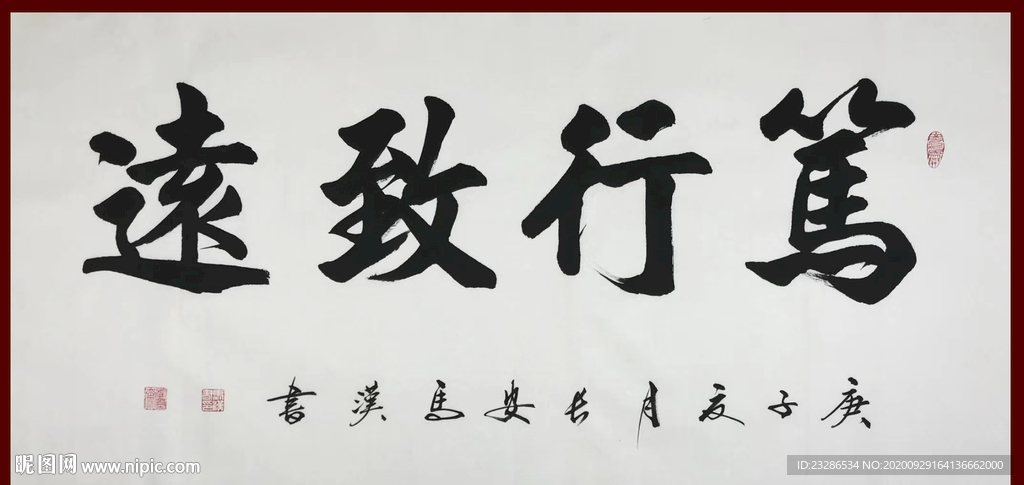 篤行致遠
庚子夏月長安馬漢書
昵图网 www.nipic.com
ID:23286534 NO:20200929164136662000